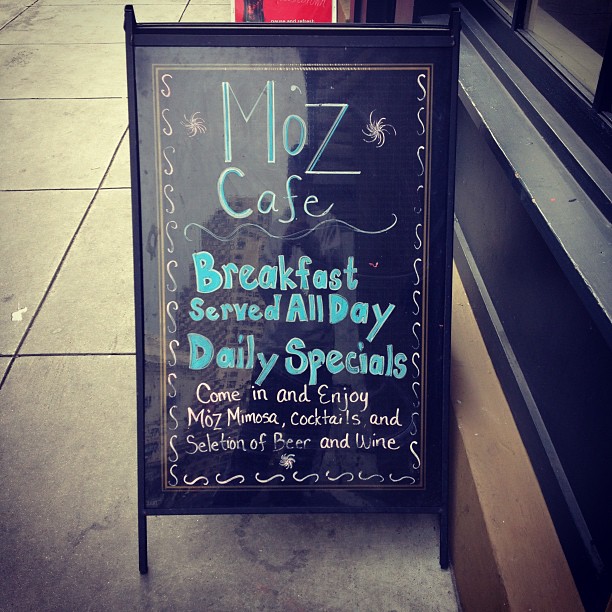 pause and refresh
MoZ
Cafe
Breakfast
Served All Day
Daily Specials
Come in and Enjoy
MoZ Mimosa, Cocktails and
Seletion of Beer and Wine